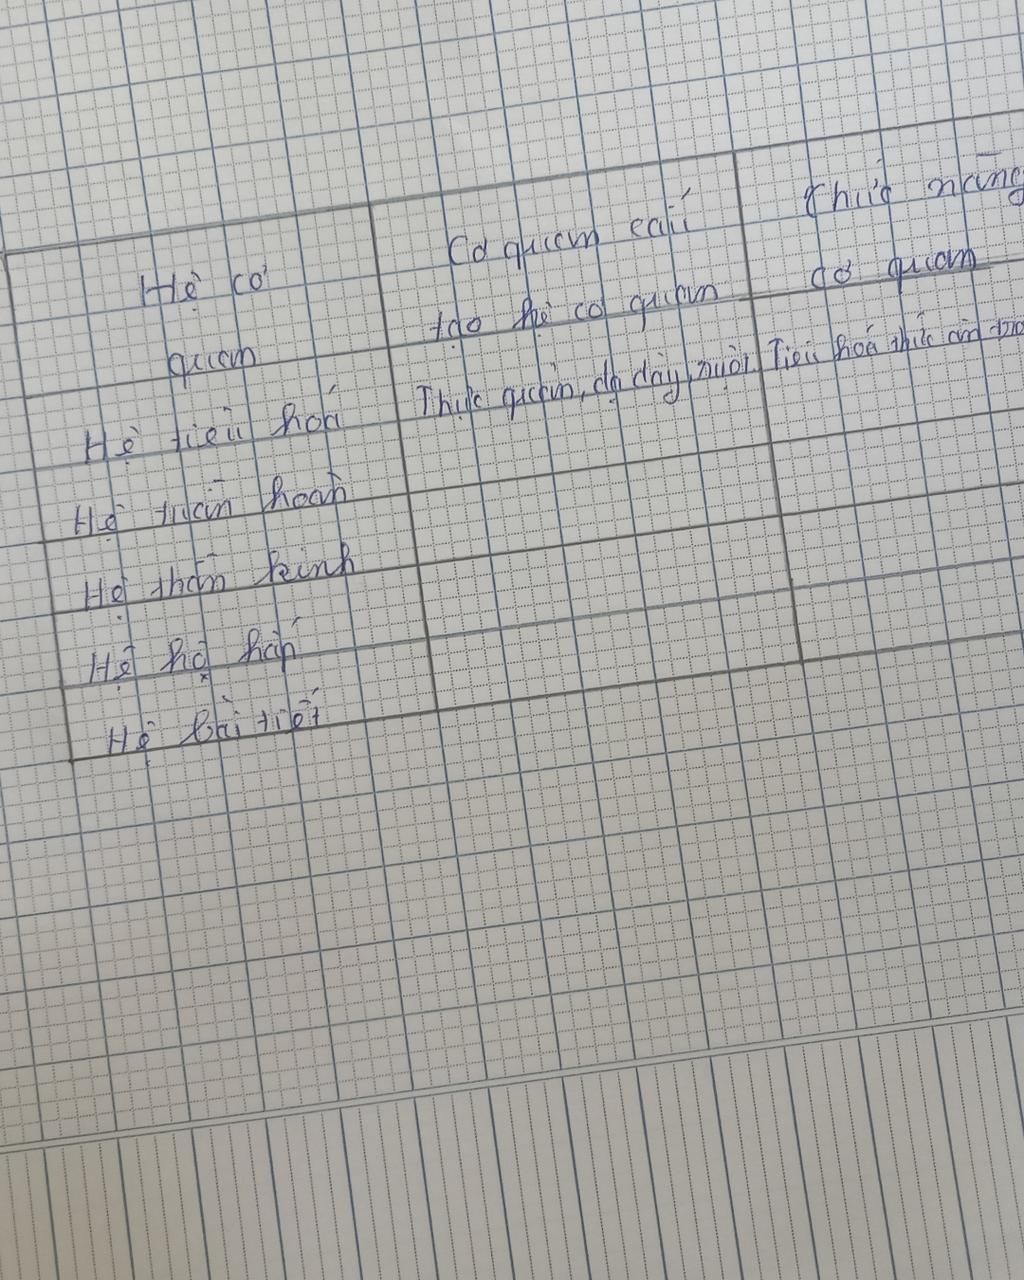 Hệ cơ
quan
Cơ quan cấu
tạo hệ cơ quan
Chức năng
cơ quan
Hệ tiêu hoá
Thực quản, dạ dày, ruột
Tiêu hoá thức ăn
Hệ tuần hoàn
Hệ thần kinh
Hệ hô hấp
Hệ bài tiết